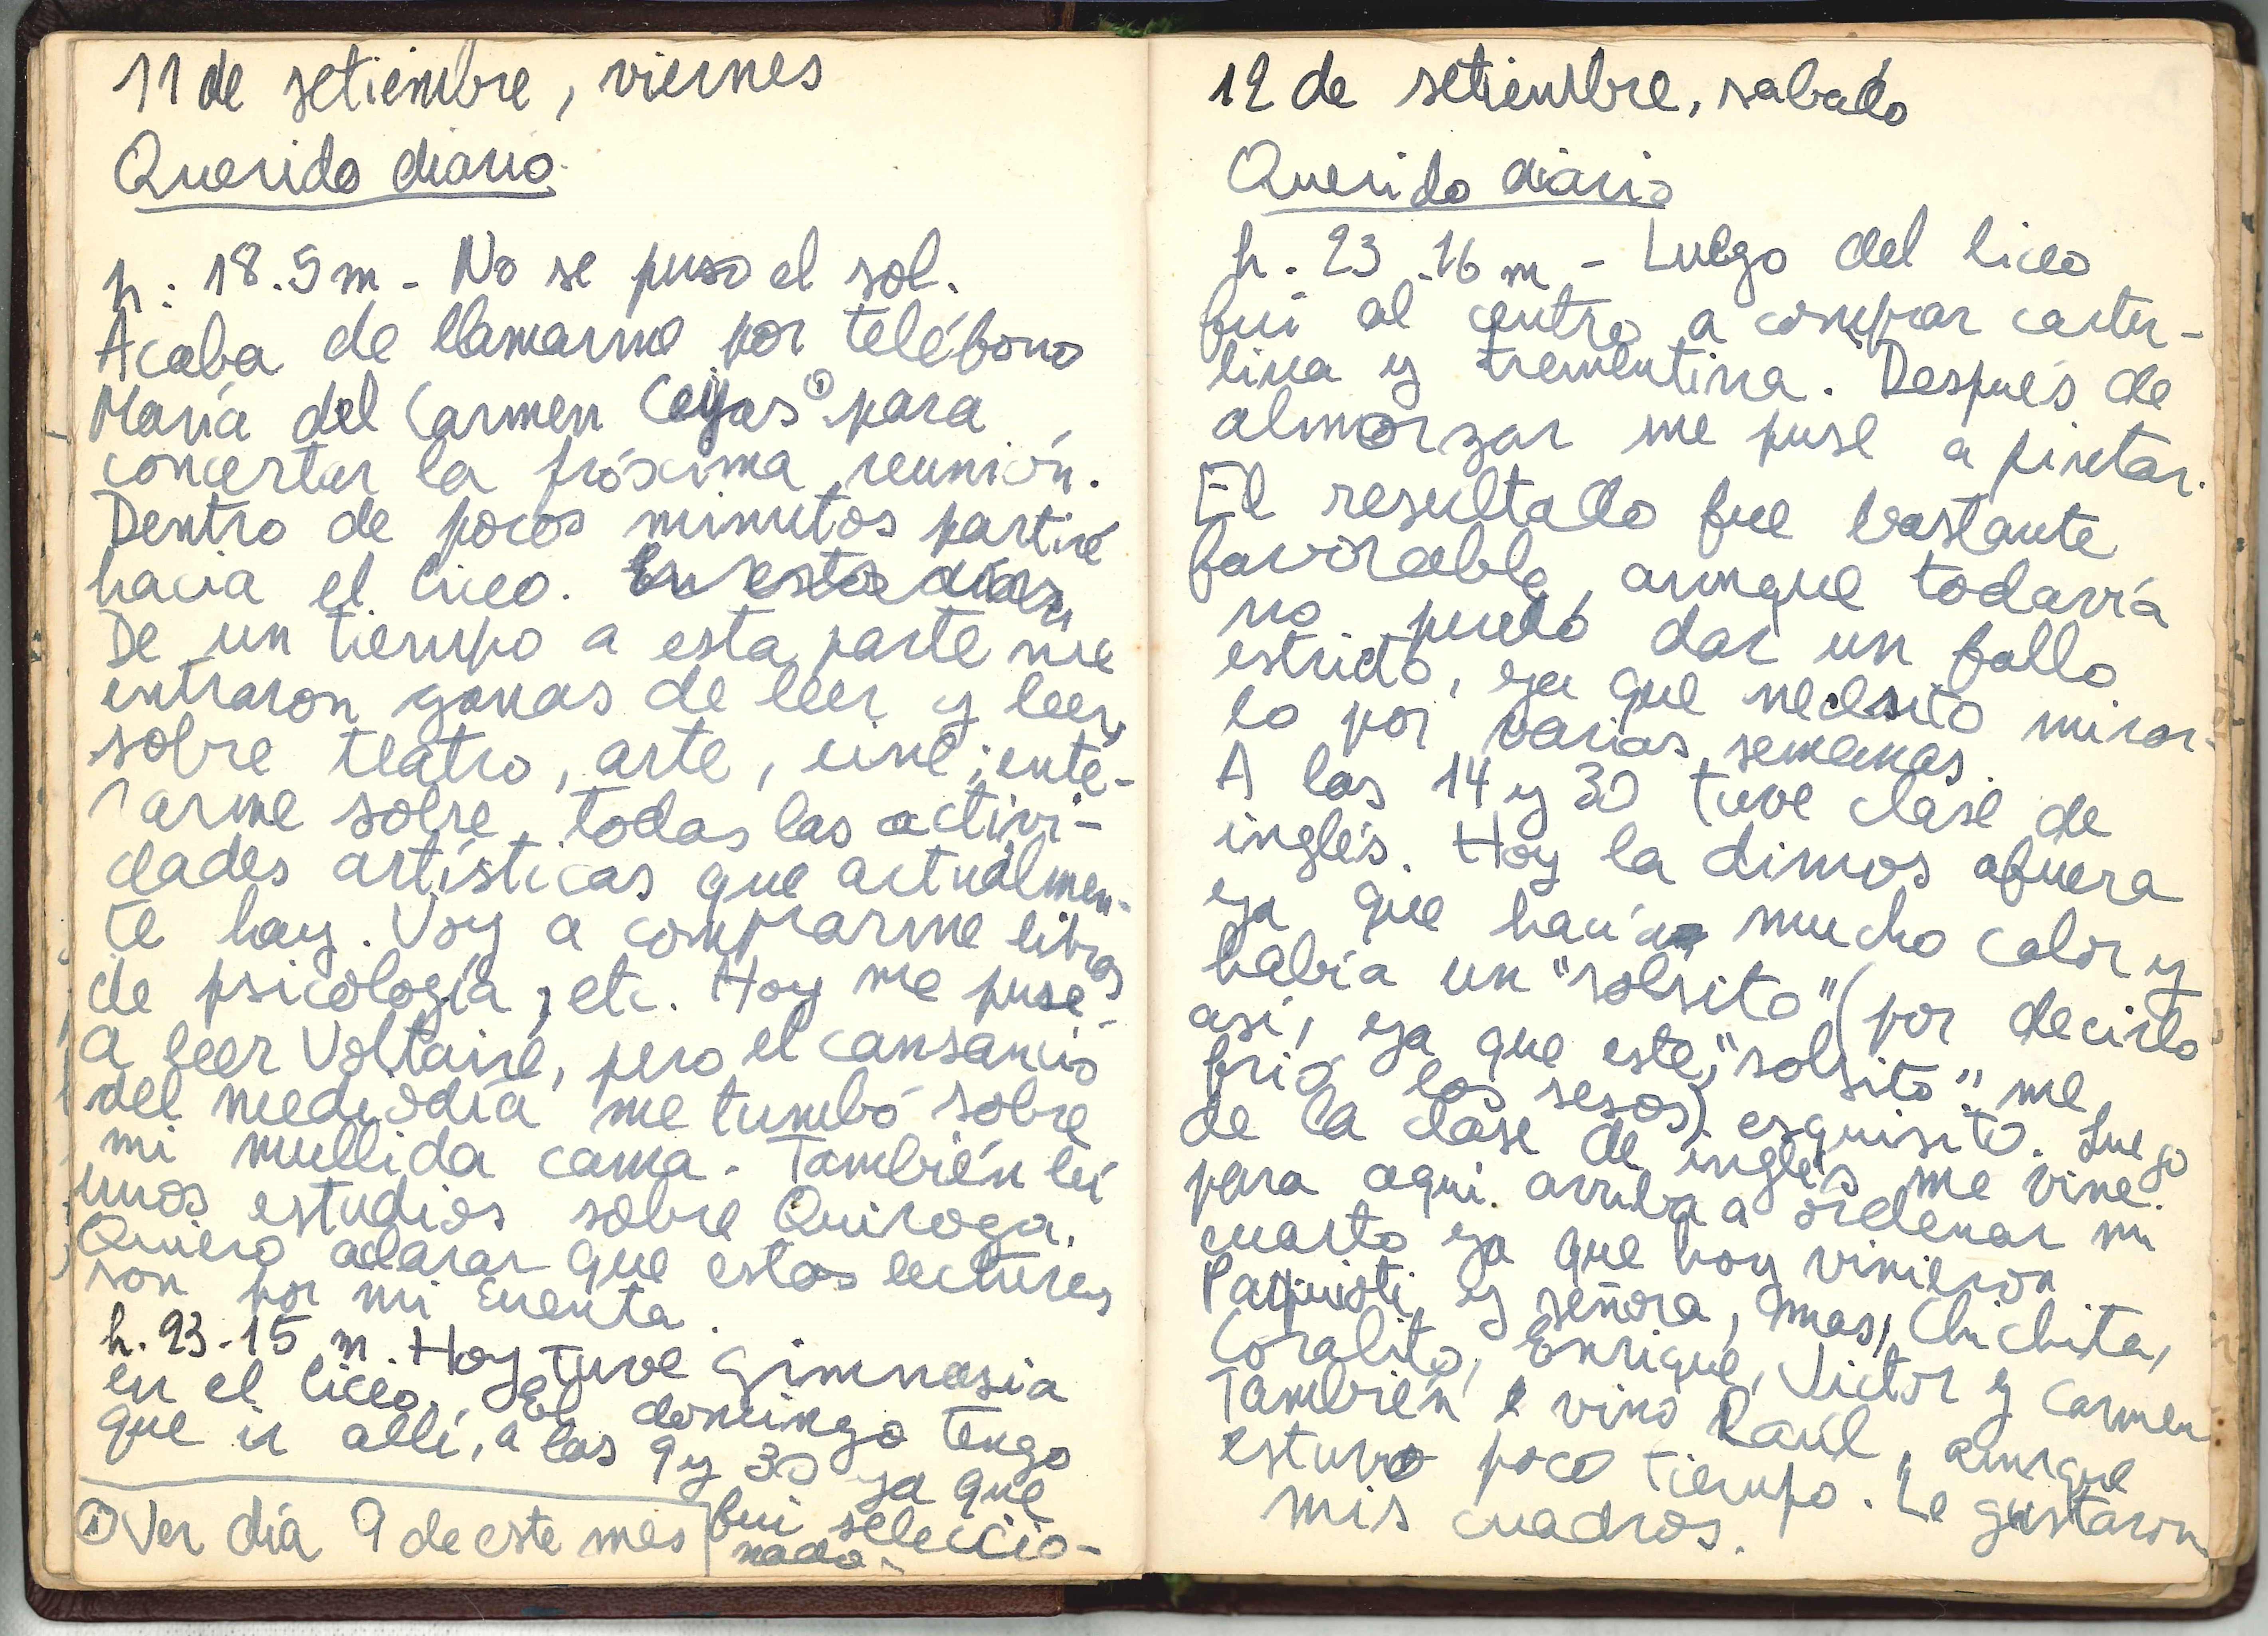 11 de setiembre, viernes
Querido diario
h: 18.5m - No se puso el sol.
Acaba de llamarme por teléfono
María del Carmen Ceijas① para
concertar la próxima reunión.
Dentro de pocos minutos partiré
hacia el liceo. En estos días,
De un tiempo a esta parte me
entraron ganas de leer y leer,
sobre teatro, arte, cine; ente-
rarme sobre todas las activi-
dades artísticas que actualmen-
te hay. Voy a comprarme libros
de psicología, etc. Hoy me puse
a leer Voltaire, pero el cansancio
del mediodía me tumbó sobre
mi mullida cama. También leí
unos estudios sobre Quiroga.
Quiero aclarar que estas lecturas
son por mi cuenta.
h. 23-15 m. Hoy tuve gimnasia
en el liceo. El domingo tengo
que ir allí, a las 9 y 30 ya que
fui seleccio-
nada.
① Ver día 9 de este mes
12 de setiembre, sabado
Querido diario
h. 23-16 m - Luego del liceo
fui al centro a comprar cartu-
lina y trementina. Después de
almorzar me puse a pintar.
El resultado fue bastante
favorable, aunque todavía
no puedo dar un fallo
estricto, ya que necesito mirar-
lo por varias semanas.
A las 14 y 30 tuve clase de
inglés. Hoy la dimos afuera
ya que hacía mucho calor y
había un "solsito" (por decirlo
así, ya que este, "solsito" me
frió los sesos) esquisito. Luego
de la clase de inglés me vine
para aquí arriba a ordenar mi
cuarto ya que hoy vinieron
y señora, mas, Chichita,
Coralito, Enrique, Victor y Carmen
También vino Raúl, aunque
estuvo poco tiempo. Le gustaron
mis cuadros.